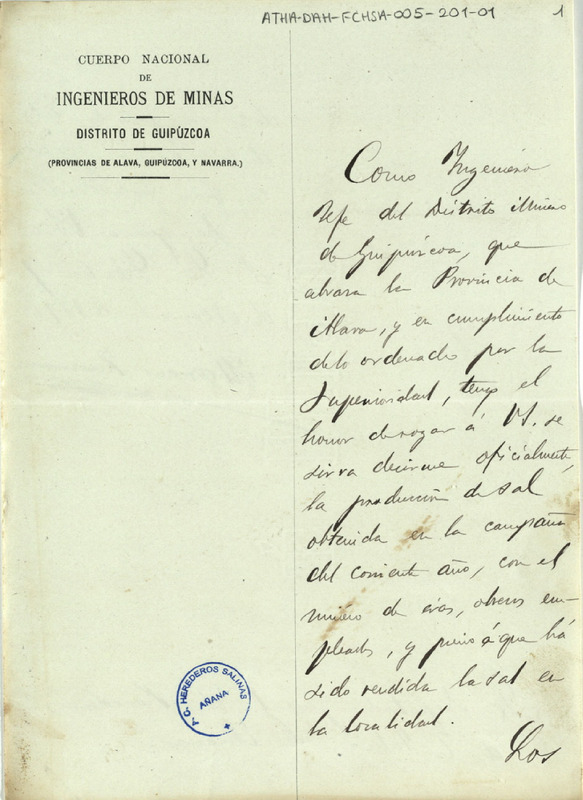 ATHA-DAH-FCHSA-005-201-01
1
CUERPO NACIONAL
DE
INGENIEROS DE MINAS
DISTRITO DE GUIPÚZCOA
(PROVINCIAS DE ALAVA, GUIPÚZCOA, Y NAVARRA.)
Como Ingeniero
Jefe del Distrito Minero
de Guipúzcoa, que
abraza la Provincia de
Alava, y en cumplimiento
delo ordenado por la
Superioridad, tengo el
honor de rogar á VS. se
sirva decirme oficialmente,
la producción de sal
obtenida en la campaña
del corriente año, con el
número de eras, obreros em-
pleados, y precio á que há
sido vendida la sal en
la localidad.
Los
P.C. HEREDEROS SALINAS
AÑANA